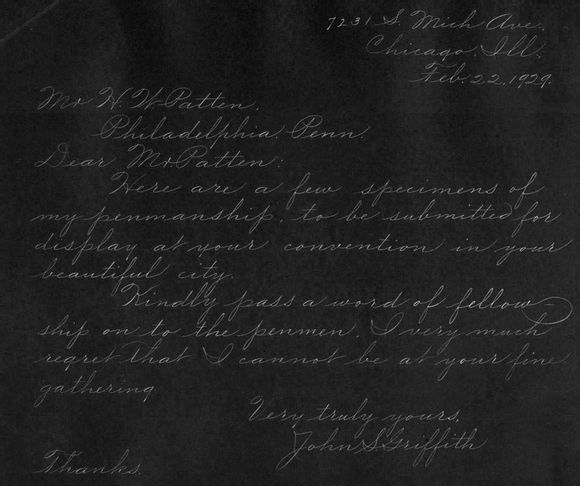 7231 S. Mich Ave.
Chicago, Ill.
Feb. 22, 1929.
Mr H. W. Patten,
Philadelphia, Penn.
Dear Mr Patten:
Here are a few specimens of
my penmanship, to be submitted for
display at your convention in your
beautiful city.
Kindly pass a word of fellow
ship on to the penmen, I very much
regret that I cannot be at your fine
gathering
Very truly yours,
John S. Griffith
Thanks.